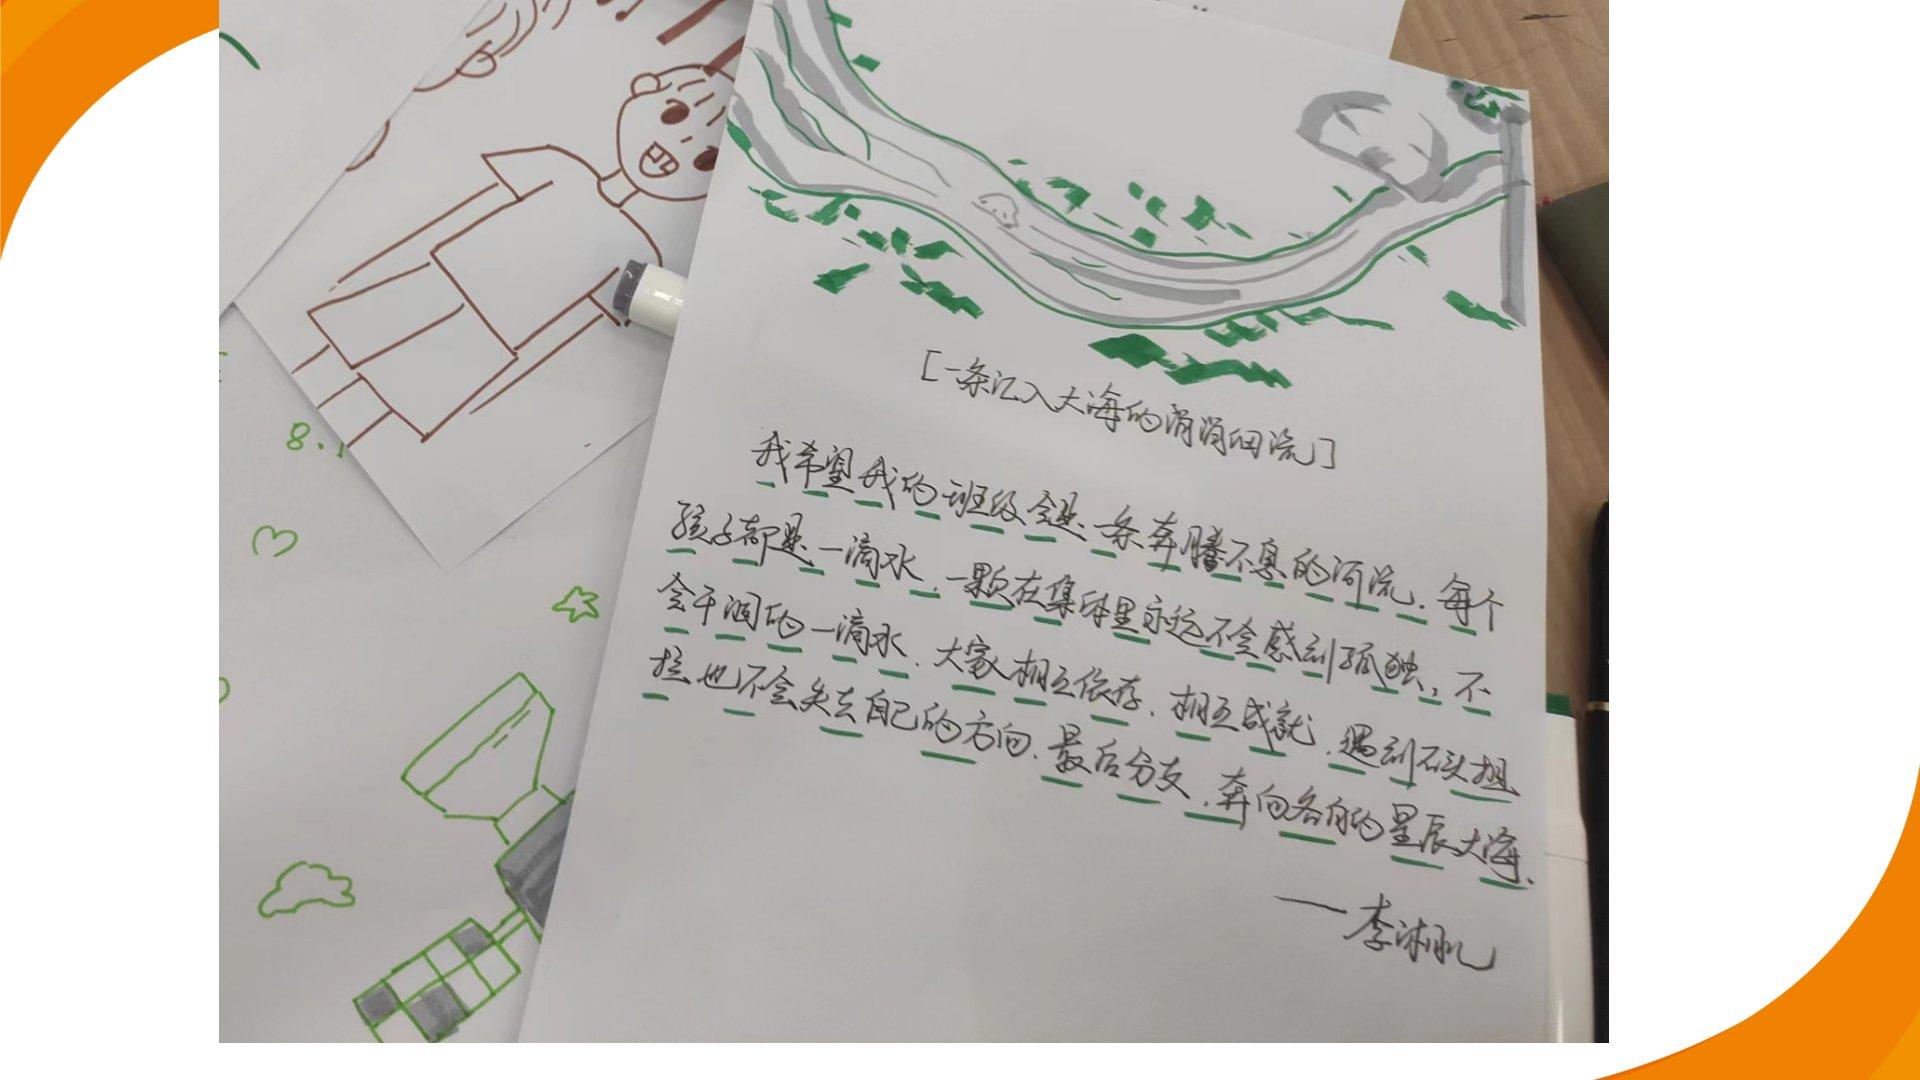 8.1
[一条汇入大海的涓涓细流]
我希望我的班级会是一条奔腾不息的河流.每个
孩子都是一滴水.一颗在集体里永远不会感到孤独,不
会干涸的一滴水.大家相互依存.相互成就.遇到石头阻
拦也不会失去自己的方向.最后分支.奔向各自的星辰大海.
——李沐